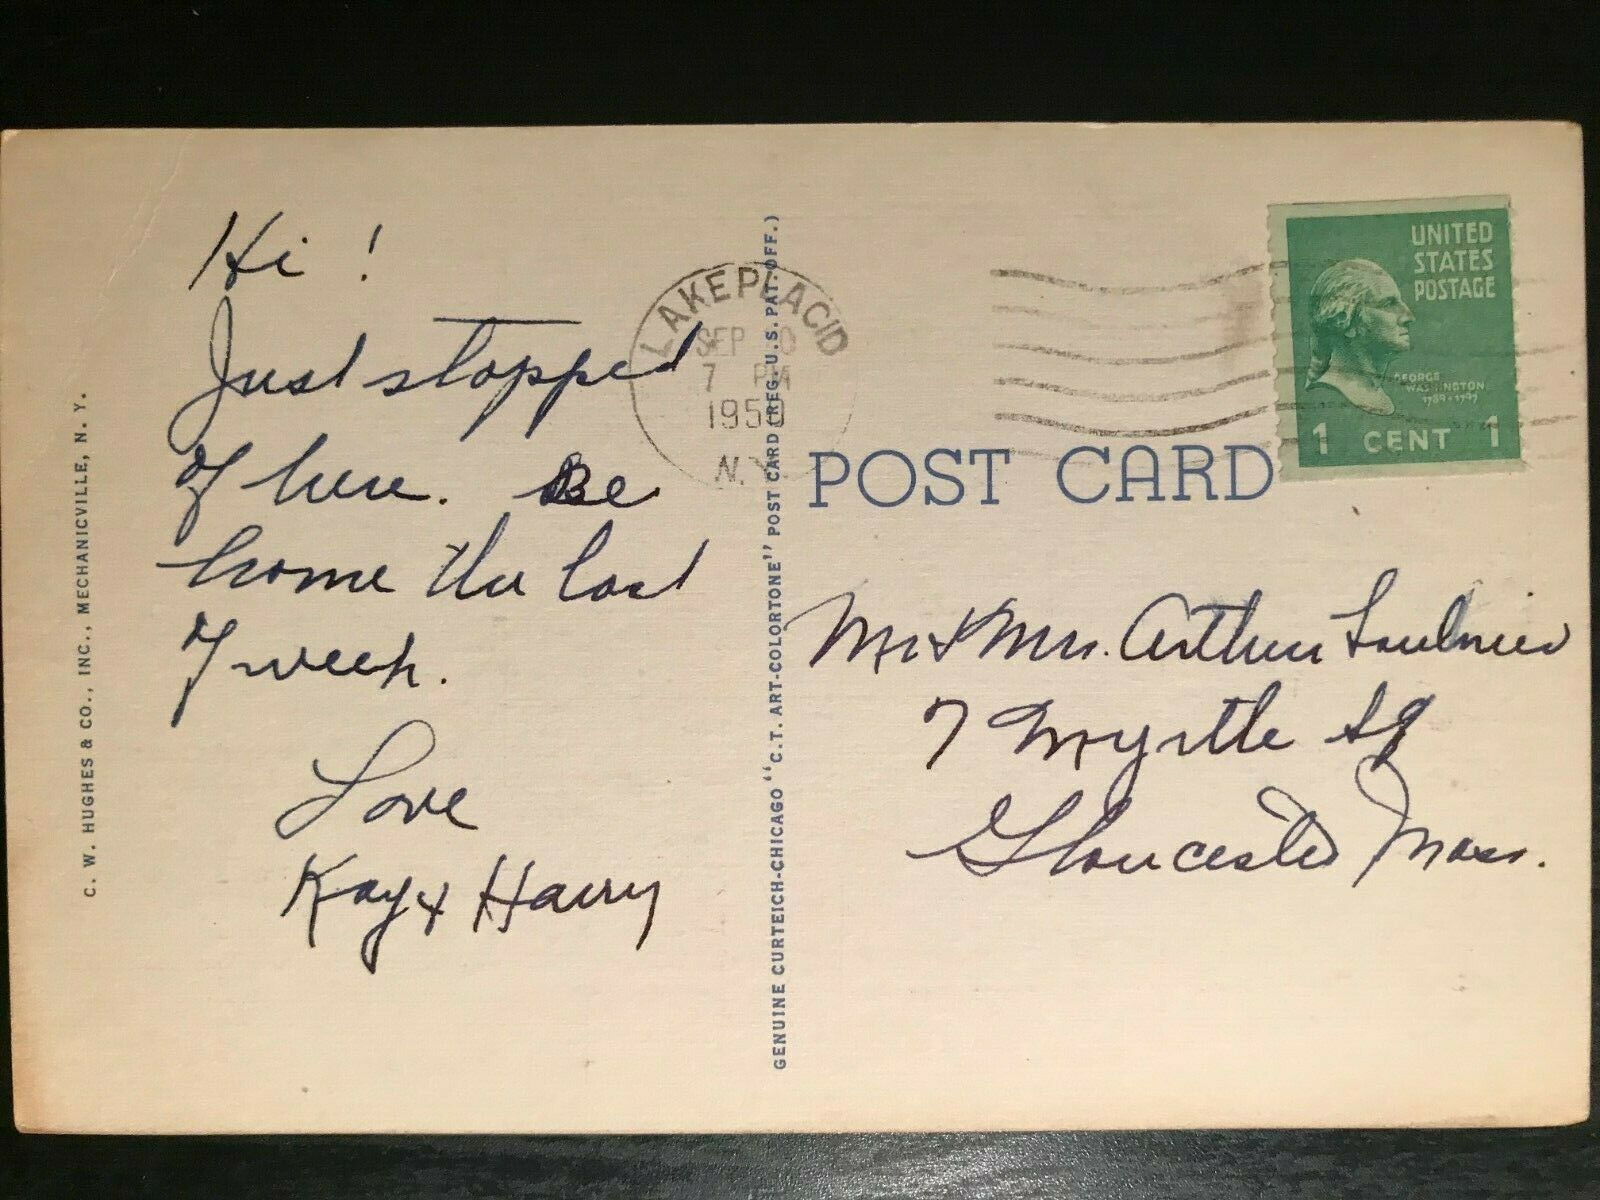 Hi !
Just stopped
of here. Be
home the last
of week.
Love
Kay & Harry
C. W. HUGHES & CO., INC., MECHANICVILLE, N. Y.
GENUINE CURTEICH-CHICAGO "C.T. ART-COLORTONE" POST CARD (REG. U.S. PAT. OFF.)
LAKE PLACID
SEP 0
7 PM
1950
N.Y.
UNITED
STATES
POSTAGE
GEORGE
WASHINGTON
1789-1797
1 CENT 1
POST CARD
Mr & Mrs. Arthur Saulnier
7 Myrtle Sq
Gloucester Mass.